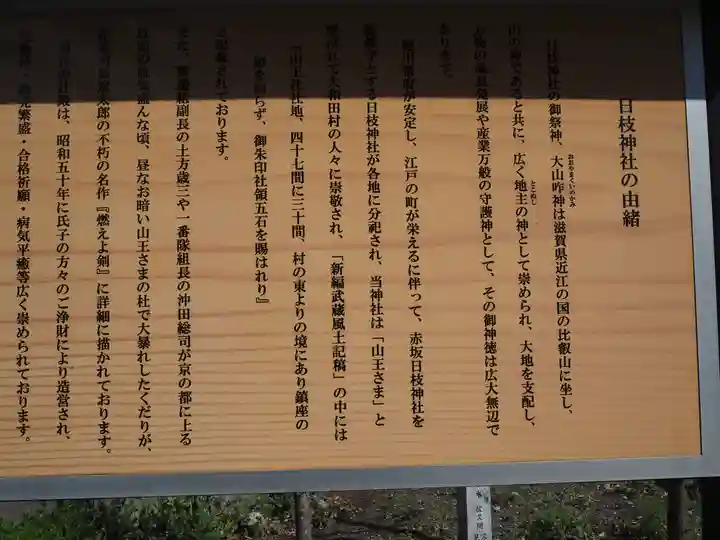 日枝神社の由緒
日枝神社の御祭神、大山咋神は滋賀県近江の国の比叡山に坐し、
おおやまくいのかみ
山の神であると共に、広く地主の神として崇められ、大地を支配し、
とこぬし
万物の成長発展や産業万般の守護神として、その御神徳は広大無辺で
あります。
徳川幕府が安定し、江戸の町が栄えるに伴って、赤坂日枝神社を
とする日枝神社が各地に分祀され、当神社は「山王さま」と
呼ばれて大和田村の人々に崇敬され、「新編武蔵風土記稿」の中には
『山王社社地、四十七間に三十間、村の東よりの境にあり鎮座の
年を知らず、御朱印社領五石を賜はれり』
と記載されております。
また、新選組副長の土方歳三や一番隊組長の沖田総司が京の都に上る
以前の血気盛んな頃、昼なお暗い山王さまの杜で大暴れしたくだりが、
司馬遼太郎の不朽の名作『燃えよ剣』に詳細に描かれております。
現在の社殿は、昭和五十年に氏子の方々のご浄財により造営され、
繁盛・合格祈願・病気平癒等広く崇められております。